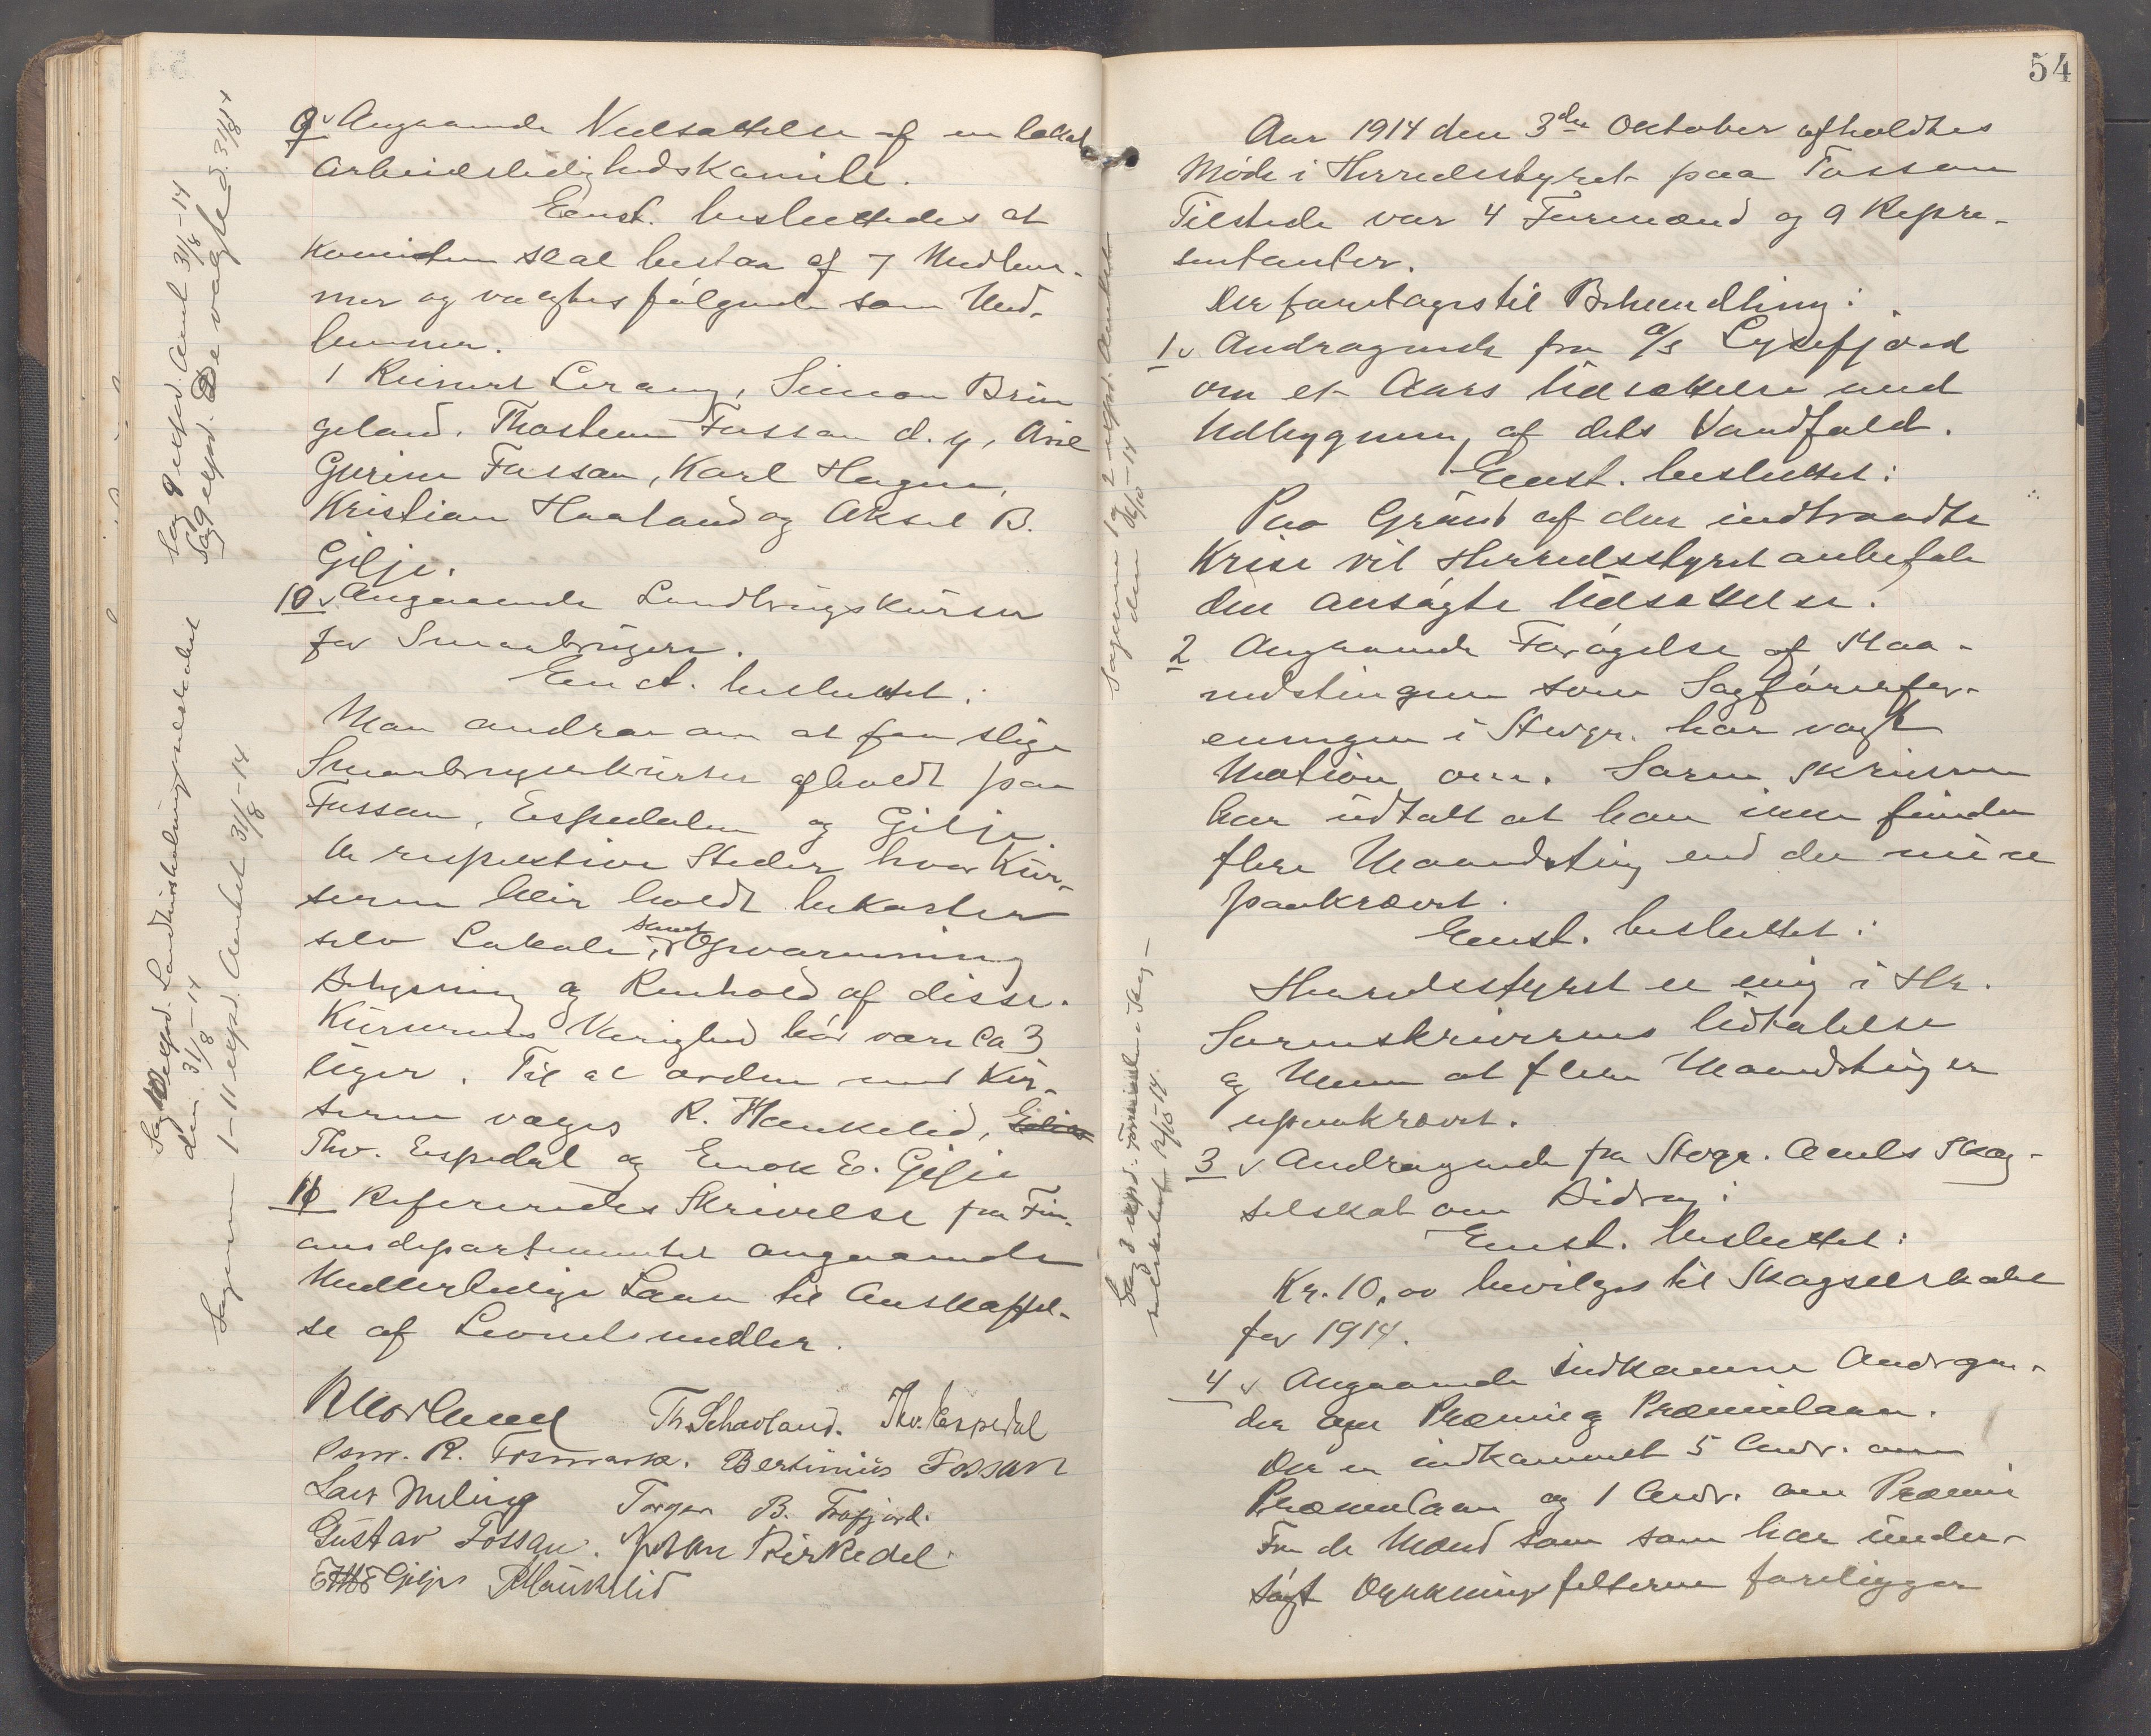 9 Angaaende Nedsættelse af en lokal
Arbeidsledighedskomite.
Enst. besluttedes at
Komiteen skal bestaa af 7 Medlem-
mer og valgtes følgende som Med-
lemmer.
1 Reinert Lerang, Simon Brin
geland. Thorstein Fossan d.y, Aril
Gurine Fossan, Karl Hagen,
Kristian Haaland og Aksel B.
Gilje.
10 Angaaende Landbrugskurser
for Smaabrugere.
Enst. besluttet:
Man andrar om at faa slige
Smaabrugerkurser afholdt paa
Fossan, Espedalen og Gilje.
De respektive Steder hvor Kur-
serne blir holdt bekoster
selv Lokale, samt Opvarmning
Belysning og Renhold af disse.
Kursernes Varighed bør være ca 3
Uger. Til at ordne med Kur-
serne valges R. Haukelid,
Thv. Espedal og Enok E. Gilje
11 Refereredes Skrivelse fra Fin-
ansdepartementet angaaende
Midlertidige Laan til Anskaffel-
se af Levnetsmidler.
R Morland Th. Schavland. Thv. Espedal
Osm. R. Fosmark. Bertinius Fossan
Lars Meling Torger B. Frafjord.
Gustav Fossan. Johan Kirkedal
E E Gilje RHaukelid
Sag 9 exped. Amtet 31/8-14
Sag 9 exped. De valgte d. 31/8 14
Sag 10 exped. Landhusholdningsselskabet
den 31/8-14
Sagerne 1-11 exped. Amtet 31/8-14
54
Aar 1914 den 3die Oktober afholdtes
Møde i Herredsstyret paa Fossan
Tilstede var 4 Formænd og 9 Repre-
sentanter.
Der foretages til Behandling:
1 Andragende fra A/S Lysefjord
om et Aars Udsættelse med
Udbygning af dets Vandfald.
Enst. besluttet:
Paa Grund af den indtraadte
Krise vil Herredsstyret anbefale
den ansøgte Udsættelse.
2 Angaaende Forøgelse af Maa-
nedstingene som Sagførerfor-
eningen i Stvgr. har vagt
Motion om. Sorenskriveren
har udtalt at han ikke finder
flere Maanedsting end de nu
paakrævet.
Enst. besluttet:
Herredsstyret er enig i Hr.
Sorenskriverens Udtalelse
og Mener at flere Maanedsting er
upaakrævet.
3 Andragende fra Stvgr. Amts Skog-
selskab om Bidrag:
Enst. besluttet:
Kr. 10,00 bevilges til Skogselskabet
for 1914.
4 Angaaende indkomne Andragen-
der om Præmie og Præmielaan.
Der er indkommet 5 Andr. om
Præmielaan og 1 Andr. om Præmie
Fra de Mænd som som har under-
søgt Dyrkningsfelterne foreligger
Sagerne 1 og 2 exped. Amtet
den 12/10-14
Sag 3 exped. Formanden i Skog-
selskabet 12/10-14.